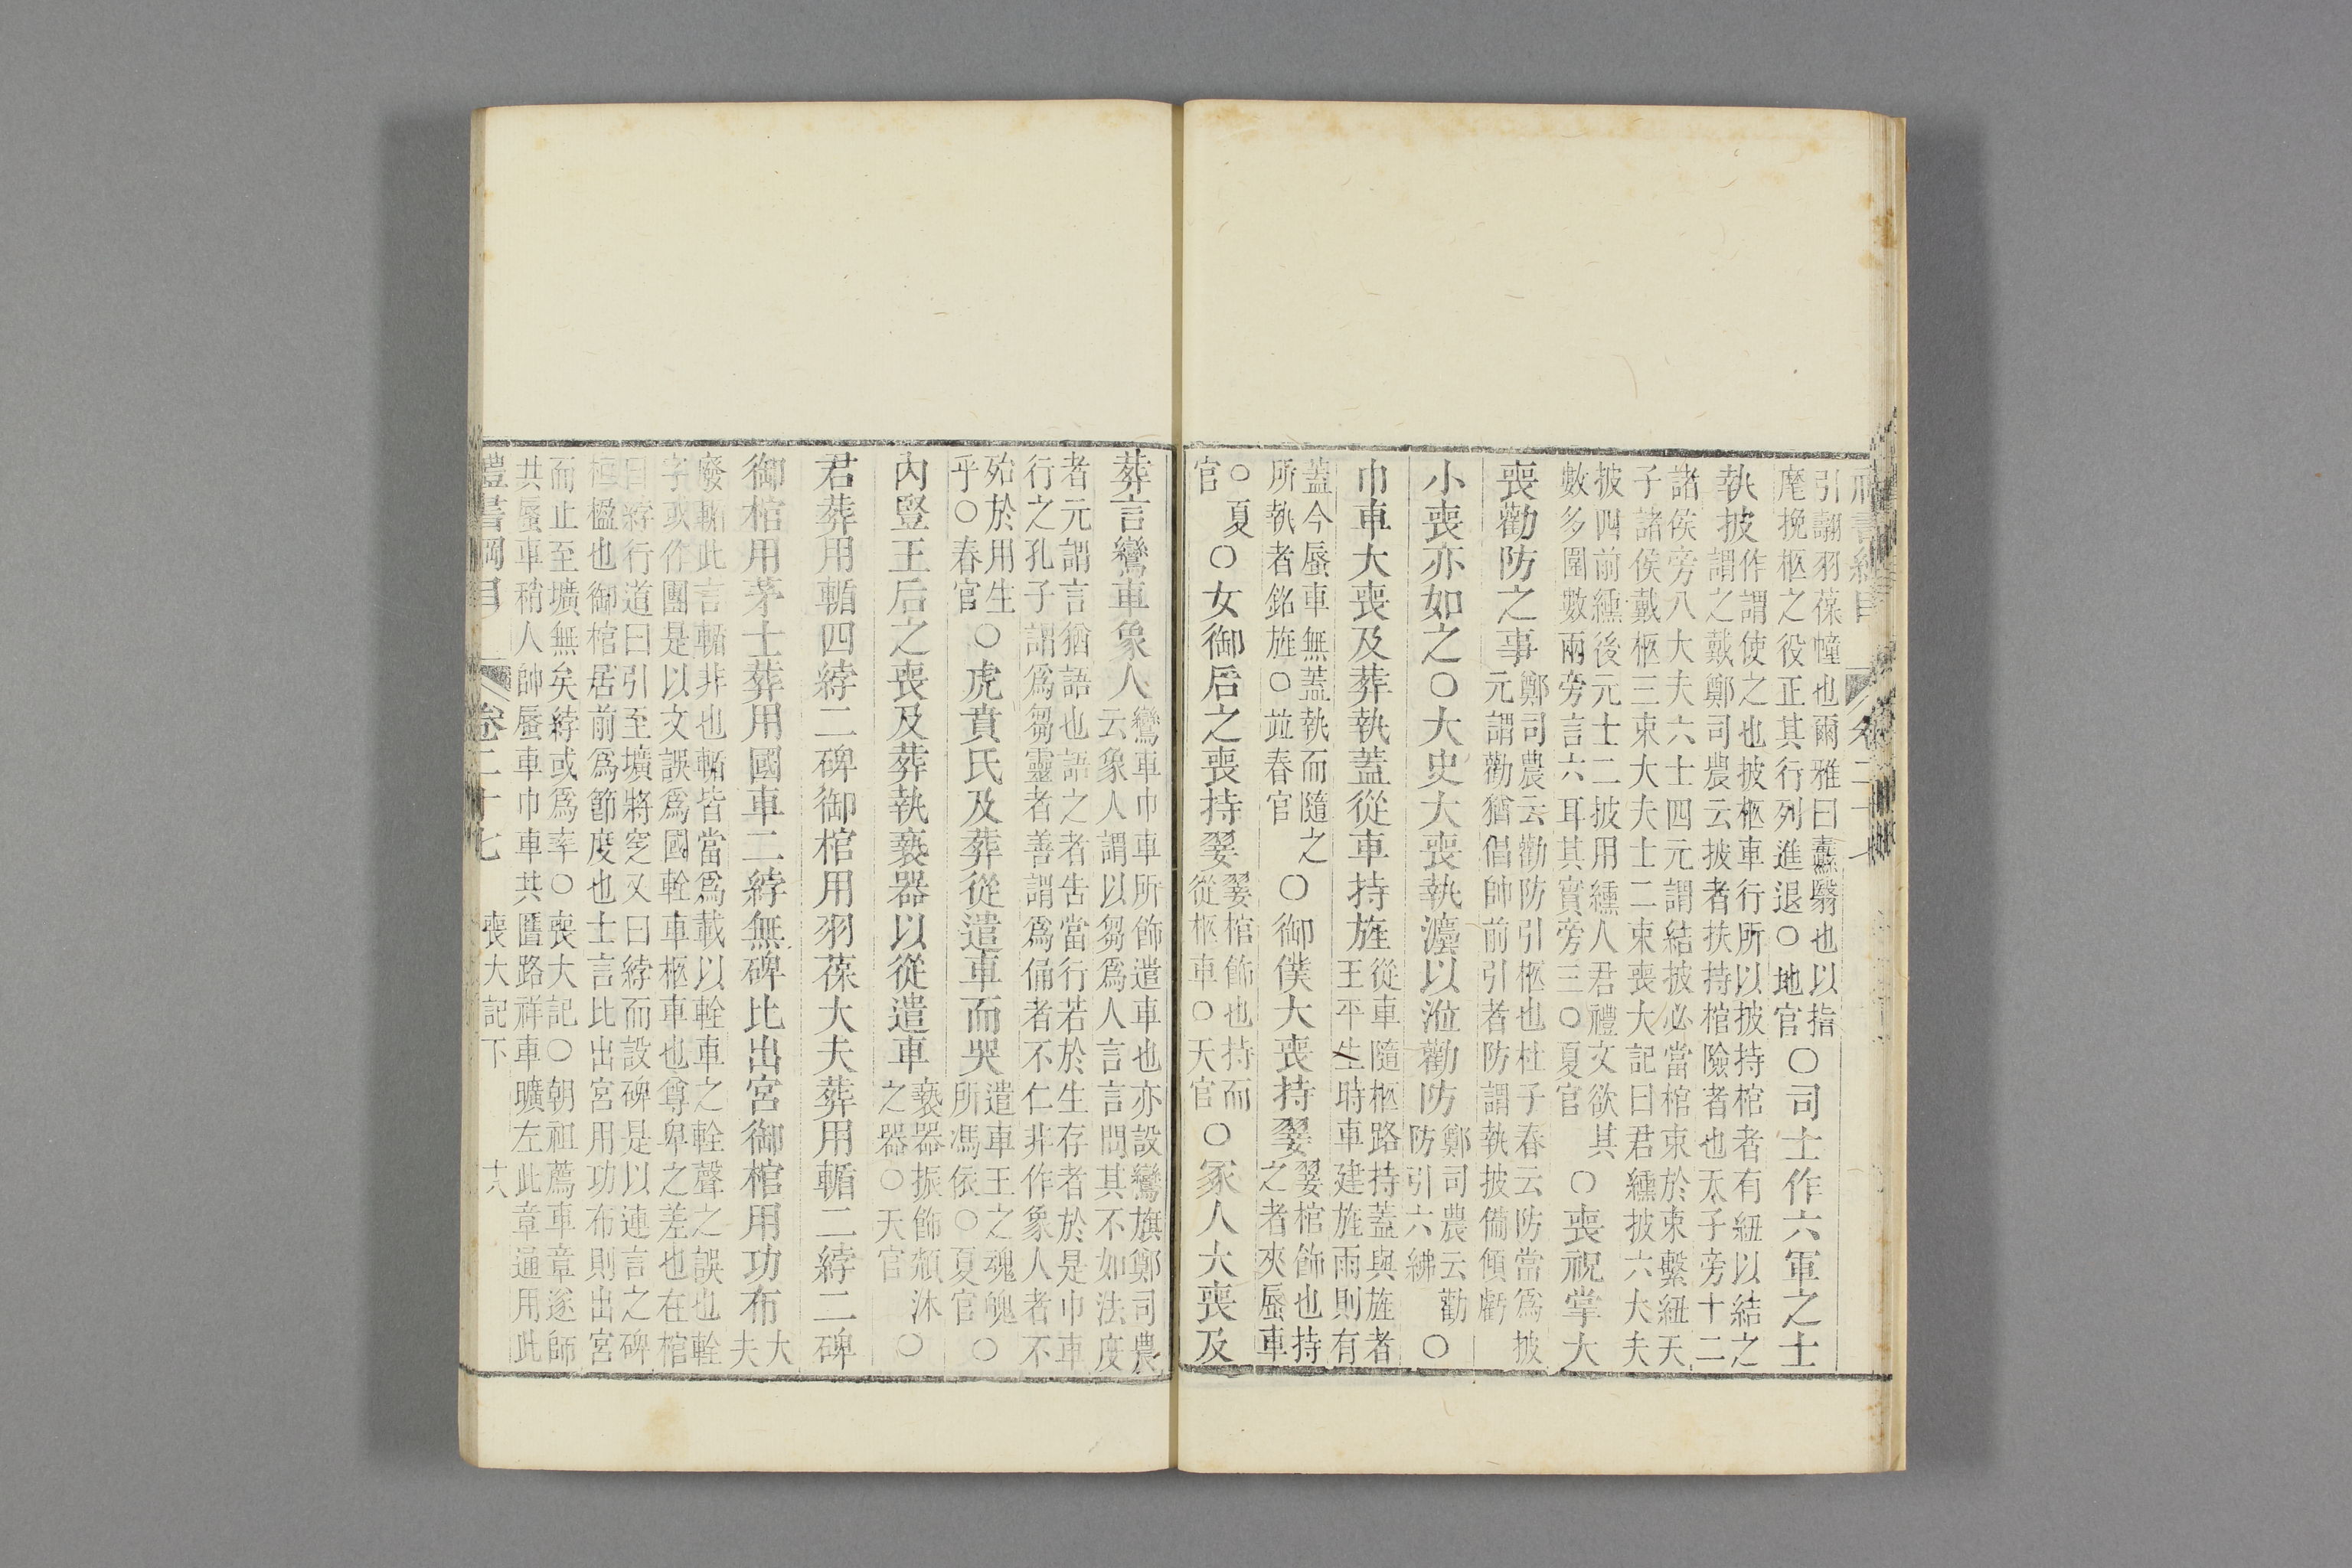 引翿羽葆幢也爾雅曰纛翳也以指
麾挽柩之役正其行列進退○地官○司士作六軍之士
執披作謂使之也披柩車行所以披持棺者有紐以結之
謂之戴鄭司農云披者扶持棺險者也天子旁十二
諸侯旁八大夫六士四元謂結披必當棺束於束繫紐天
子諸侯戴柩三束大夫士二束喪大記曰君纁披六大夫
披四前纁後元士二披用纁人君禮文欲其
數多圍數兩旁言六耳其實旁三○夏官○喪祝掌大
喪勸防之事鄭司農云勸防引柩也杜子春云防當為披
元謂勸猶倡帥前引者防謂執披備傾虧
小喪亦如之○大史大喪執灋以涖勸防鄭司農云勸
防引六紼○
巾車大喪及葬執蓋從車持旌從車隨柩路持蓋與旌者
王平生時車建旌雨則有
蓋今蜃車無蓋執而隨之
所執者銘旌○並春官○御僕大喪持翣翣棺飾也持
之者夾蜃車
○夏
官○女御后之喪持翣翣棺飾也持而
從柩車○天官○冢人大喪及
葬言鸞車象人鸞車巾車所飾遣車也亦設鸞旗鄭司農
云象人謂以芻為人言言問其不如法度
者元謂言猶語也語之者告當行若於生存者於是巾車
行之孔子謂為芻靈者善謂為俑者不仁非作象人者不
殆於用生
乎○春官○虎賁氏及葬從遣車而哭遣車王之魂魄
所馮依○夏官○
內豎王后之喪及葬執褻器以從遣車褻器振飾頮沐
之器○天官○
君葬用輴四綍二碑御棺用羽葆大夫葬用輴二綍二碑
御棺用茅士葬用國車二綍無碑比出宮御棺用功布大
夫
廢輴此言輴非也輴皆當為載以輇車之輇聲之誤也輇
字或作團是以文誤為國輇車柩車也尊卑之差也在棺
曰綍行道曰引至壙將窆又曰綍而設碑是以連言之碑
桓楹也御棺居前為節度也士言比出宮用功布則出宮
而止至壙無矣綍或為率○喪大記○朝祖薦車章遂師
共蜃車稍人帥蜃車巾車共匶路祥車曠左此章通用此
禮書綱目 卷二十七 喪大記下 十六